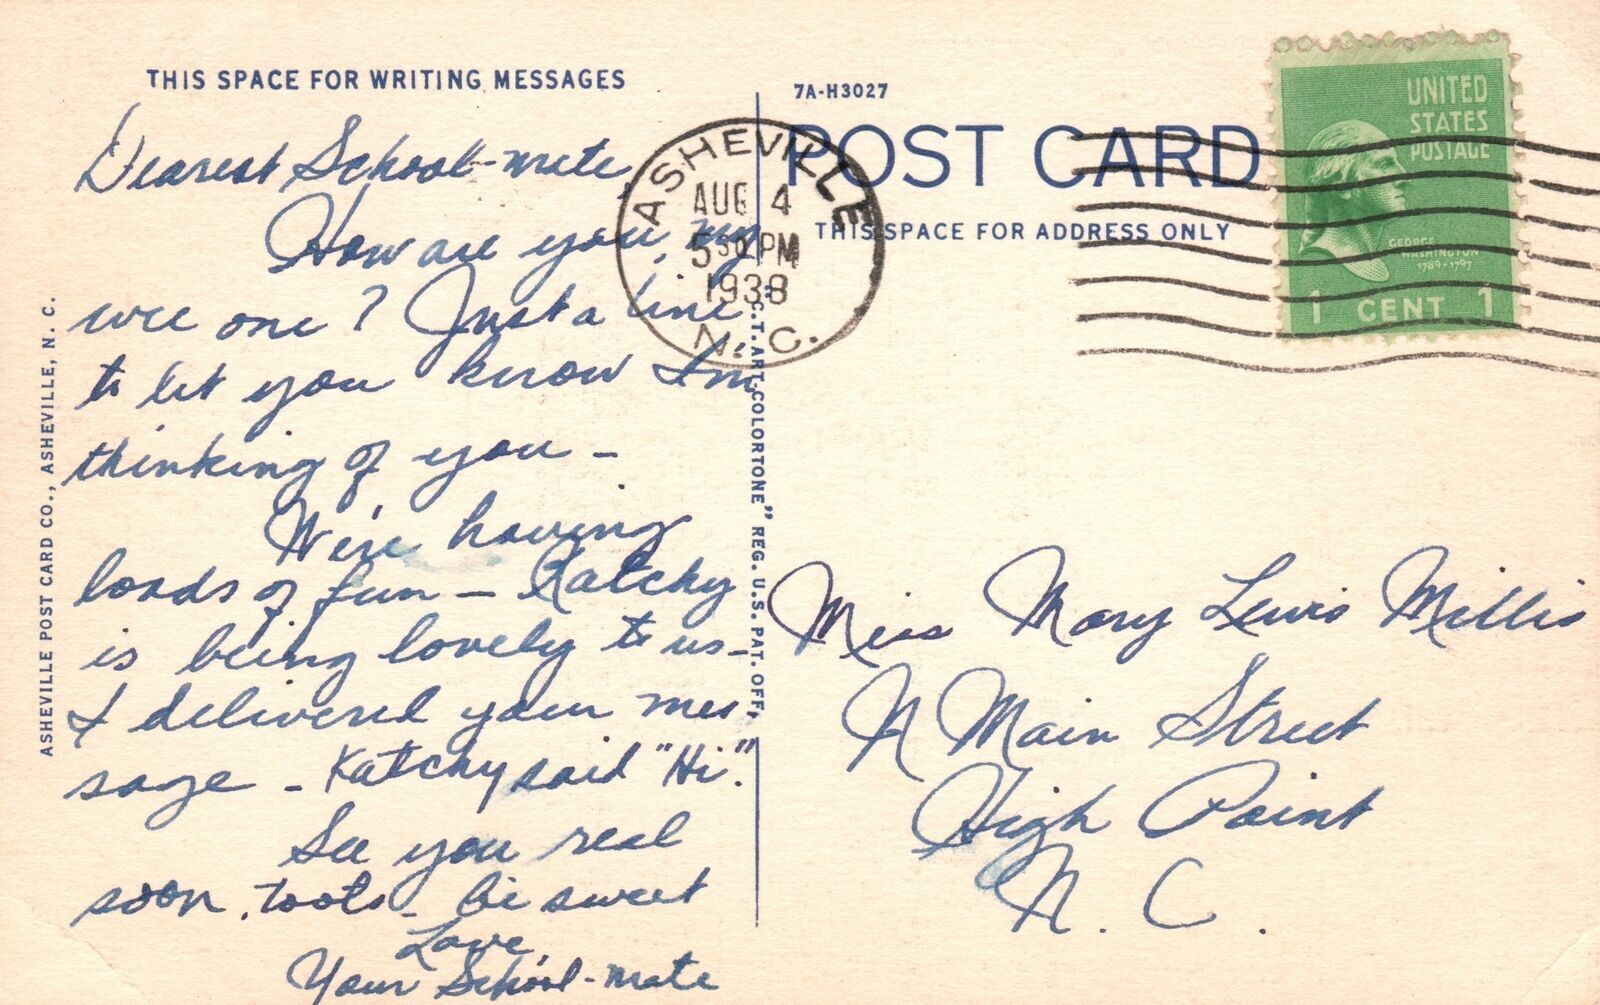 THIS SPACE FOR WRITING MESSAGES
Dearest School-mate,
How are you, my
wee one? Just a line
to let you know I'm
thinking of you –
We're having
loads of fun – Katchy
is being lovely to us –
I delivered your mes-
sage – Katchy said "Hi".
See you real
soon, toots – be sweet
Love
Your School-mate
ASHEVILLE POST CARD CO., ASHEVILLE, N. C.
"C.T. ART-COLORTONE" REG. U.S. PAT. OFF.
7A-H3027
POST CARD
THIS SPACE FOR ADDRESS ONLY
ASHEVILLE
AUG 4
5 30 PM
1938
N. C.
UNITED
STATES
POSTAGE
GEORGE
WASHINGTON
1789-1797
1 CENT 1
Miss Mary Lewis Millis
N Main Street
High Point
N. C.